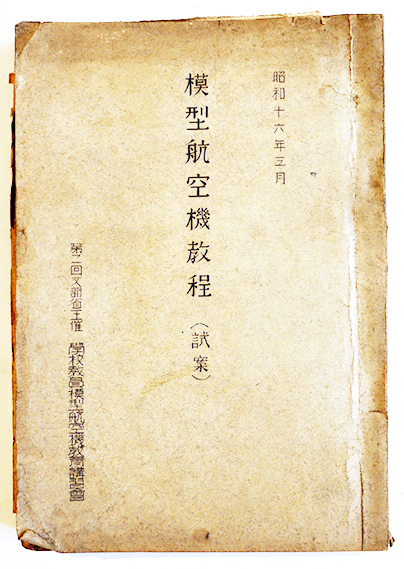 昭和十六年三月
模型航空機教程（試案）
第二回文部省主催 學校教員模型航空機教育講習會